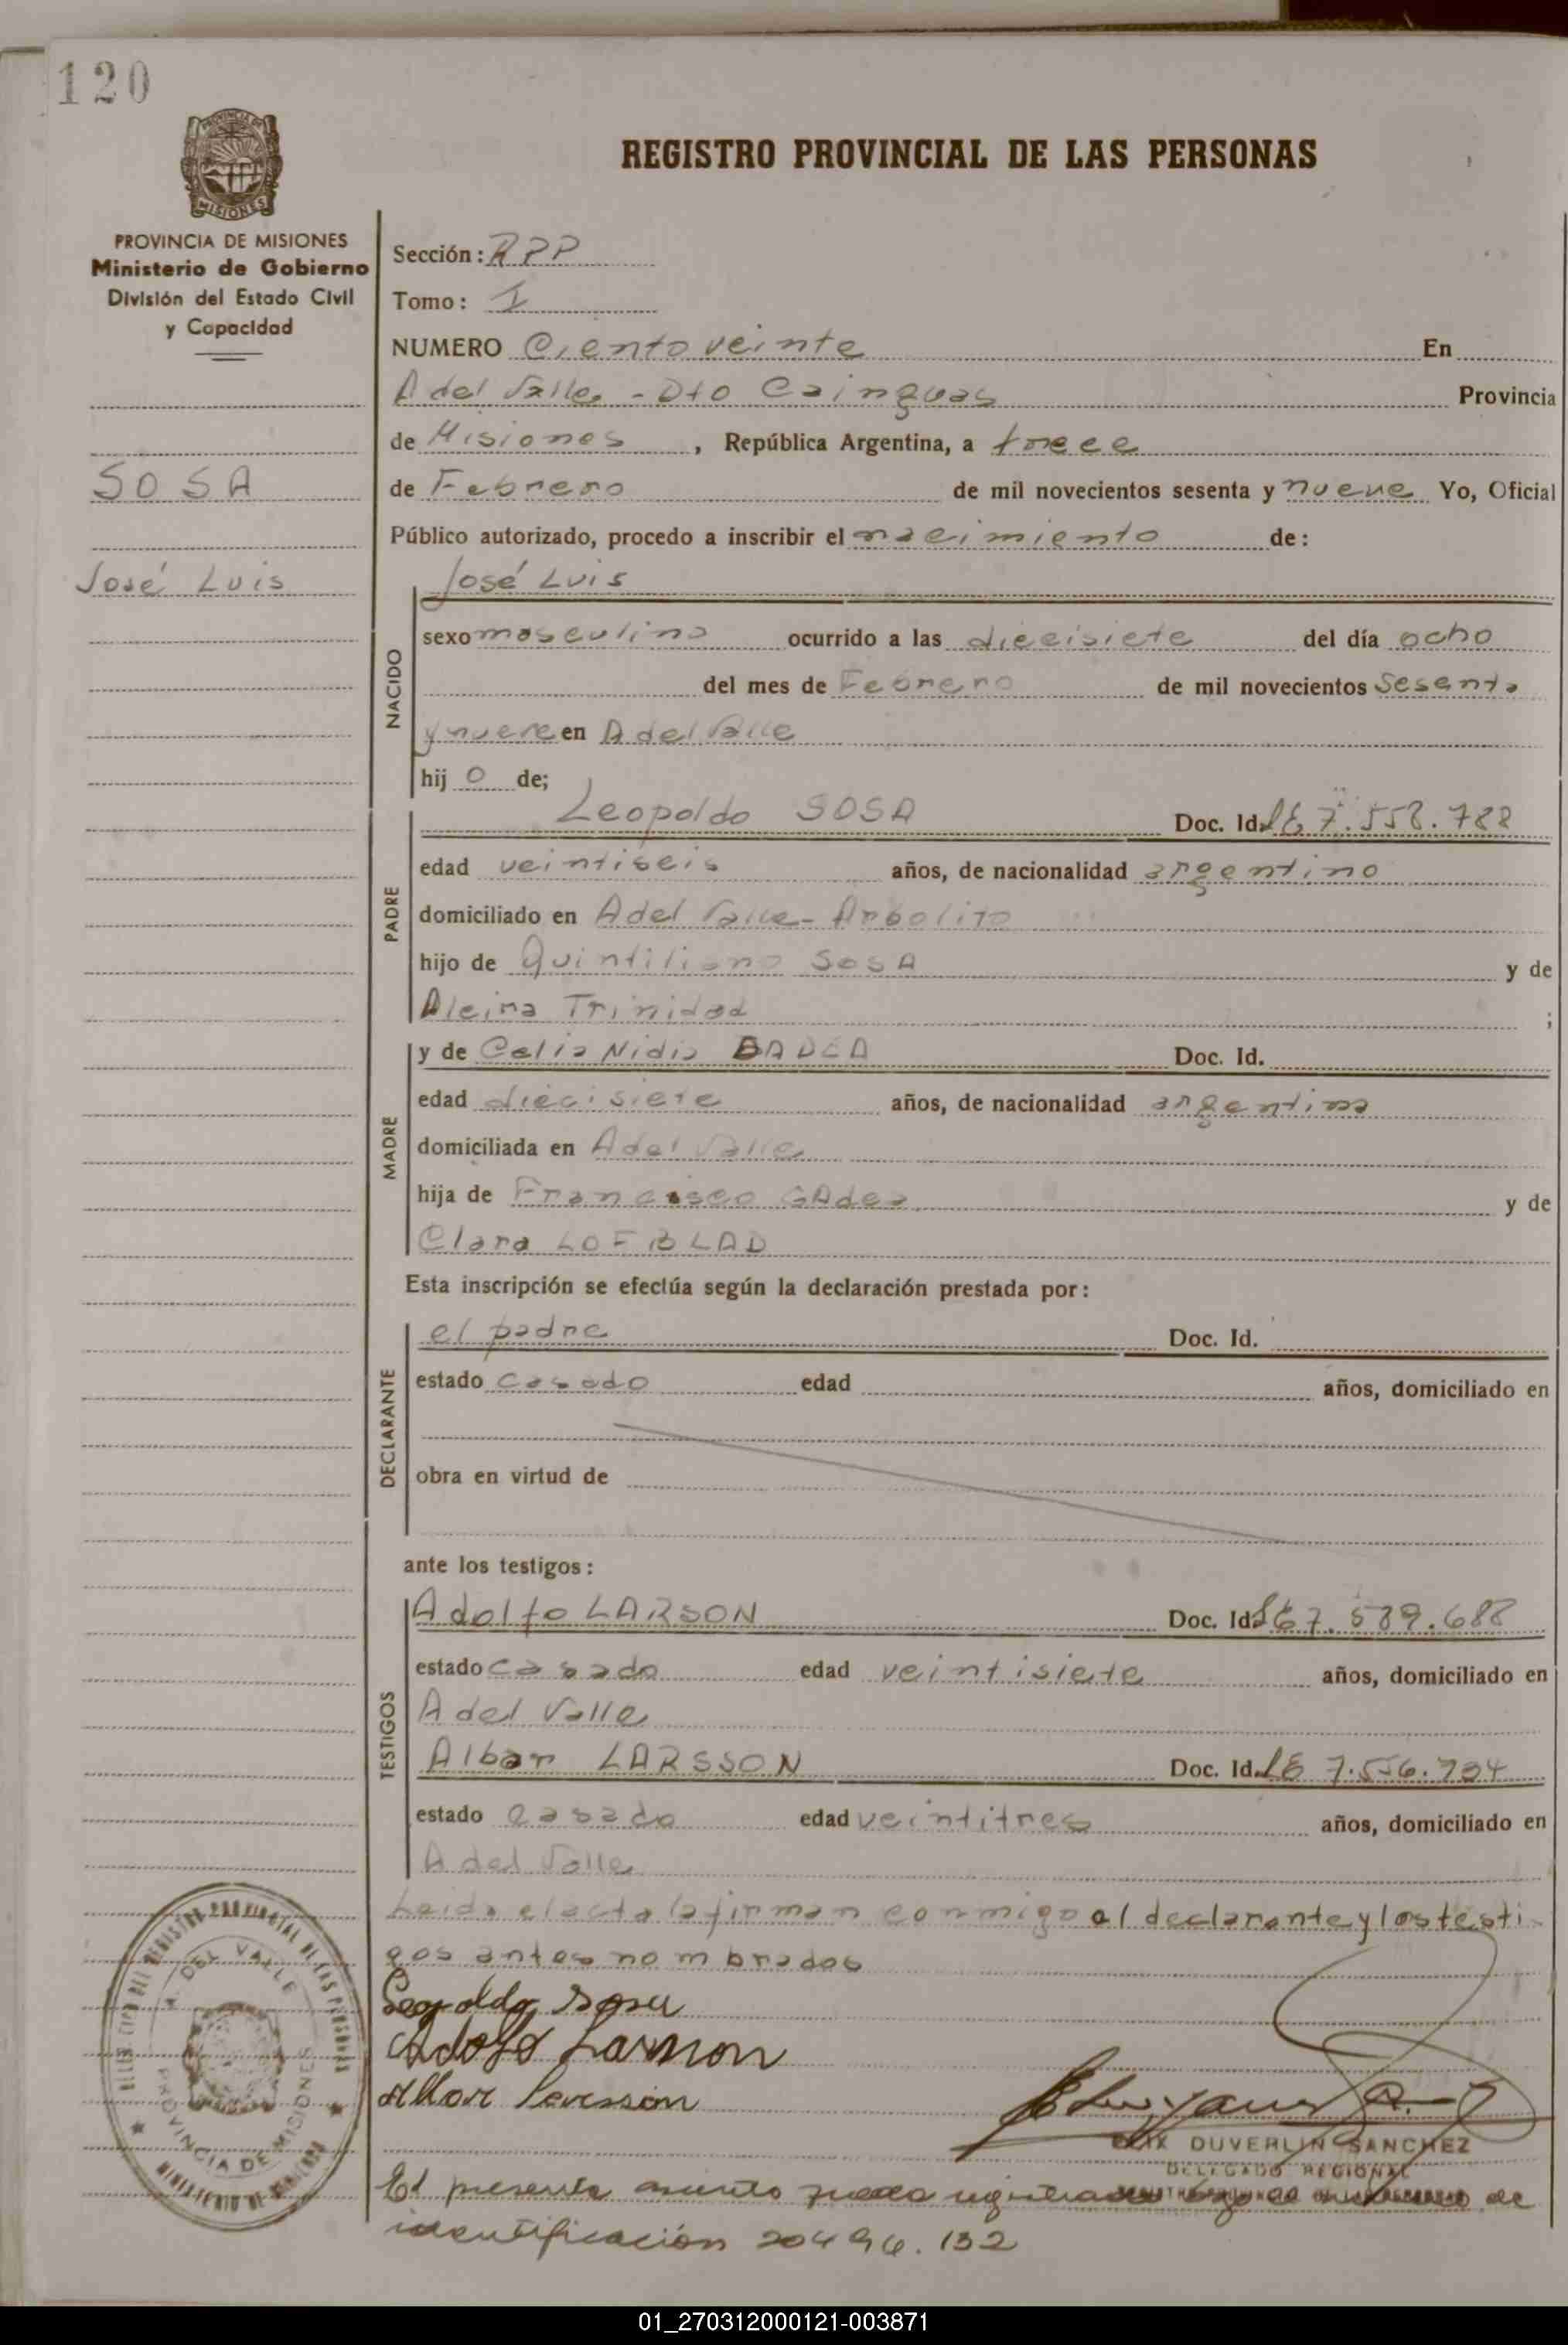 120
REGISTRO PROVINCIAL DE LAS PERSONAS
PROVINCIA DE MISIONES
Ministerio de Gobierno
División del Estado Civil
y Capacidad
SOSA
José Luis
Sección: RPP
Tomo: I
NUMERO Ciento veinte En
A del Valle - Dto Cainguas Provincia
de Misiones, República Argentina, a trece
de Febrero de mil novecientos sesenta y nueve Yo, Oficial
Público autorizado, procedo a inscribir el nacimiento de:
NACIDO
José Luis
sexo masculino ocurrido a las diecisiete del día ocho
del mes de Febrero de mil novecientos sesenta
y nueve en A del Valle
hij o de;
PADRE
Leopoldo SOSA Doc. Id. LE 7.558.788
edad veintiseis años, de nacionalidad argentino
domiciliado en A del Valle - Arbolito
hijo de Quintiliano SOSA y de
Alcira Trinidad ;
MADRE
y de Celia Nidia Doc. Id.
edad diecisiete años, de nacionalidad argentina
domiciliada en A del Valle
hija de Francisco y de
Clara LOFBLAD
Esta inscripción se efectúa según la declaración prestada por:
DECLARANTE
el padre Doc. Id.
estado casado edad años, domiciliado en
obra en virtud de
ante los testigos:
TESTIGOS
Adolfo LARSON Doc. Id. LE 7.589.688
estado casado edad veintisiete años, domiciliado en
A del Valle
Albar LARSSON Doc. Id. LE 7.556.734
estado casado edad veintitres años, domiciliado en
A del Valle
Leida el acta la firman conmigo el declarante y los testi-
gos antes nombrados
Leopoldo Sosa
Adolfo Larson
Albar Larsson
FELIX DUVERLIN SANCHEZ
DELEGADO REGIONAL
A. DEL VALLE
PROVINCIA DE MISIONES
El presente asiento queda registrado bajo el número de
identificación 20496.132
01_270312000121-003871